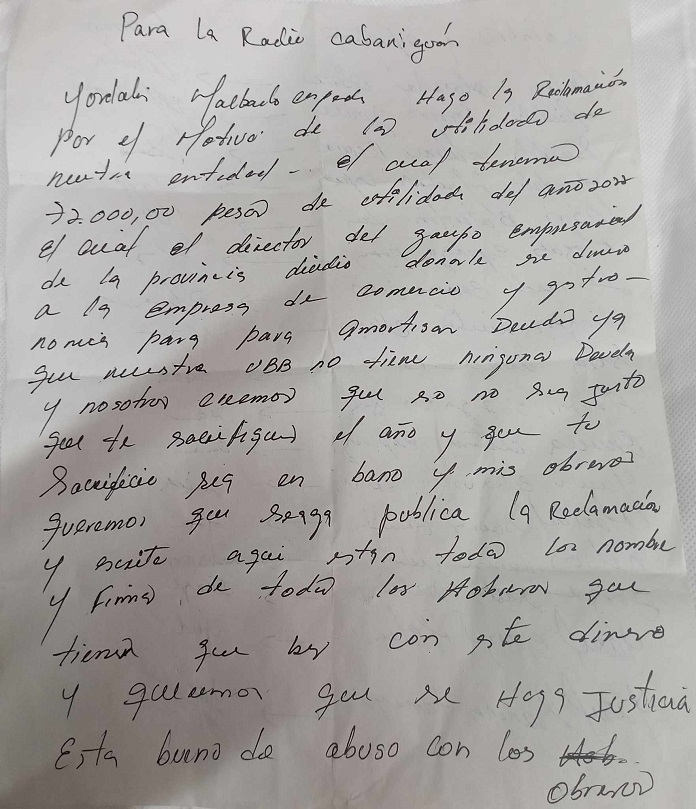 Para la Radio cabaniguán
Yordalis Maceo Hago la Reclamación
por el Motivo de la utilidade de
nuestra entidad - el cual tenemo
72.000,00 pesos de utilidade del año 2022
el cual el director del grupo empresarial
de la provincia disidio donarle se dinero
a la empresa de comercio y gastro-
nomia para para amortisar Deuda ya
que nuestra UBB no tiene ninguna Deuda
y nosotros creemos que eso no sea justo
que te sacrifiques el año y que tu
sacrificio sea en bano y mis obreros
queremos que seaga publica la Reclamación
y escrita aqui estan todos los nombre
y firma de todos los Hobreros que
tienen que ber con este dinero
y queremos que se Haga Justicia
Esta bueno de abuso con los
Obreros